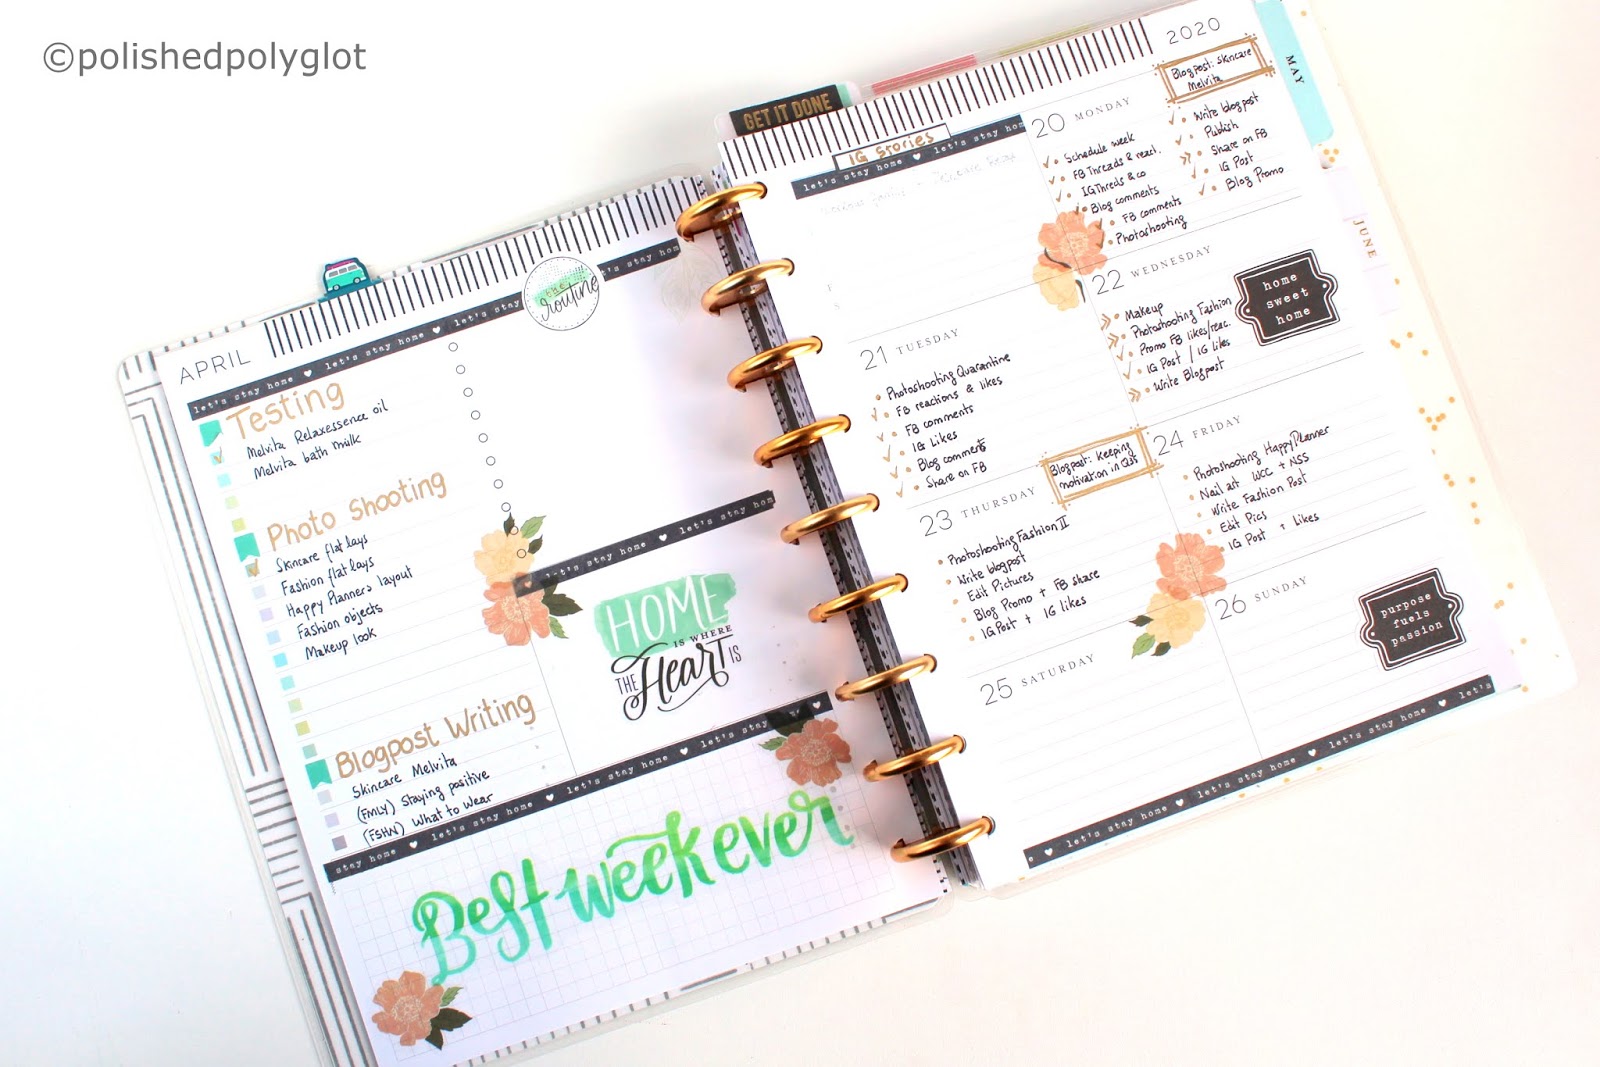 ©polishedpolyglot
APRIL
let's stay home ♥ let's stay home ♥ let's stay
the routine
let's stay home
Testing
Melvita Relaxessence oil
Melvita bath milk
Photo Shooting
Skincare flatlays
Fashion flatlays
Happy Planners layout
Fashion objects
Makeup look
Blogpost Writing
Skincare Melvita
(FMLY) Staying positive
(FSHW) What to Wear
let's stay home ♥ let's stay hom
HOME
IS WHERE
THE Heart IS
stay home ♥ let's stay home ♥ let's stay home ♥ let's stay home ♥
Best week ever
GET IT DONE
2020
MAY
JUNE
IG Stories
let's stay home ♥ let's stay hom
20 MONDAY
Blogpost: Skincare
Melvita
Schedule week
FB Threads & react.
IG Threds & co
Blog comments
FB comments
Photoshooting
Write blogpost
Publish
Share on FB
IG Post
Blog Promo
21 TUESDAY
Photoshooting Quarantine
FB reactions & likes
FB comments
IG Likes
Blog comments
Share on FB
22 WEDNESDAY
Makeup
Photoshooting Fashion
Promo FB likes/reac.
IG Post / IG likes
Write Blogpost
home
sweet
home
23 THURSDAY
Blogpost: Keeping
motivation in Q3s
Photoshooting Fashion II
Write blogpost
Edit Pictures
Blog Promo + FB share
IG Post + IG likes
24 FRIDAY
Photoshooting HappyPlanner
Nail art WCC + NSS
Write Fashion Post
Edit Pics
IG Post + Likes
25 SATURDAY
26 SUNDAY
purpose
fuels
passion
e ♥ let's stay home ♥ let's stay home ♥ let's stay home ♥ let's